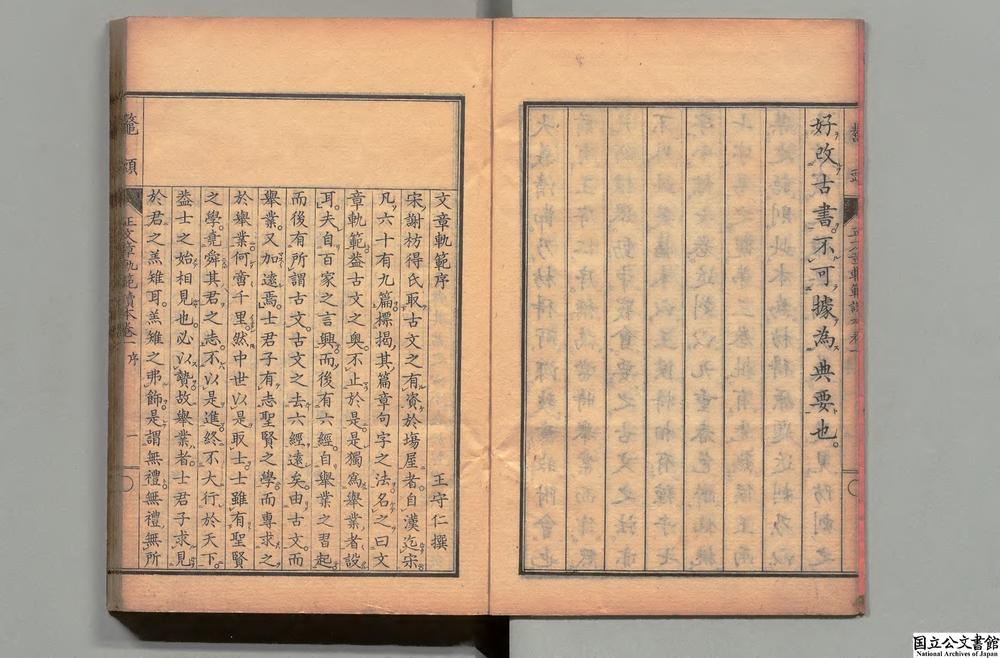 好改古書不可據為典要也。
文章軌範序
王守仁撰
宋謝枋得氏取古文之有資於塲屋者自漢迄宋
凡六十有九篇標揭其篇章句字之法名之曰文
章軌範葢古文之奥不止於是是獨為舉業者設
耳夫自百家之言興而後有六經自舉業之習起
而後有所謂古文古文之去六經遠矣由古文而
舉業又加遠焉士君子有志聖賢之學而專求之
於舉業何啻千里然中世以是取士士雖有聖賢
之學堯舜其君之志不以是進終不大行於天下
葢士之始相見也必以贄故舉業者士君子求見
於君之羔雉耳羔雉之弗飾是謂無禮無禮無所
鼇頭
正文章軌範讀本卷一 序
一
国立公文書館
National Archives of Japan